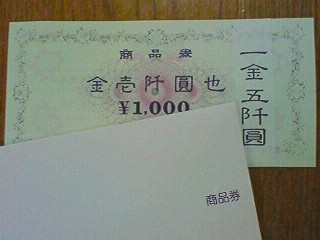 商品券
金壱阡圓也
¥1,000
一金五阡圓
商品券